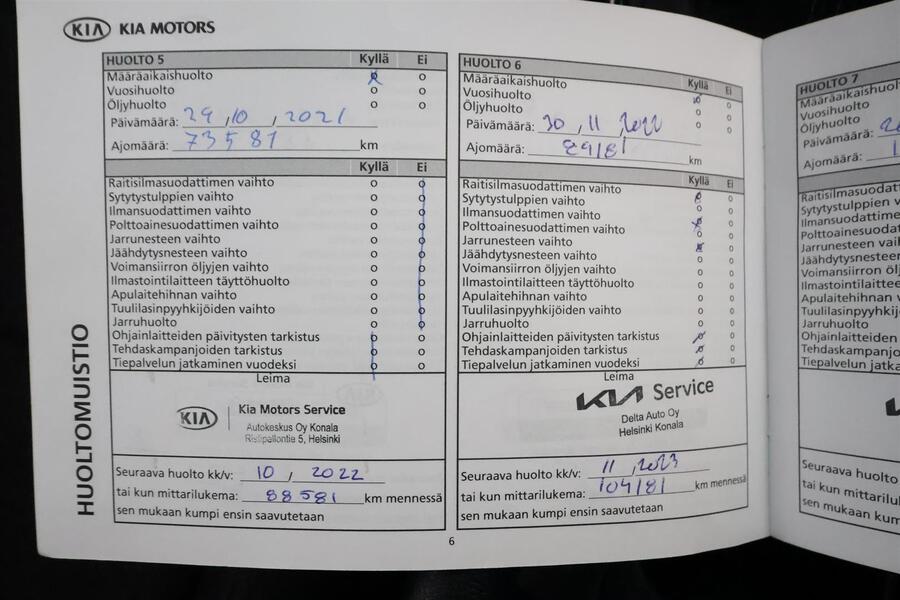 KIA KIA MOTORS
HUOLTO 5 Kyllä Ei
Määräaikaishuolto o o
Vuosihuolto o o
Öljyhuolto o o
Päivämäärä: 29 , 10 , 2021
Ajomäärä: 73581 km
Kyllä Ei
Raitisilmasuodattimen vaihto o o
Sytytystulppien vaihto o o
Ilmansuodattimen vaihto o o
Polttoainesuodattimen vaihto o o
Jarrunesteen vaihto o o
Jäähdytysnesteen vaihto o o
Voimansiirron öljyjen vaihto o o
Ilmastointilaitteen täyttöhuolto o o
Apulaitehihnan vaihto o o
Tuulilasinpyyhkijöiden vaihto o o
Jarruhuolto o o
Ohjainlaitteiden päivitysten tarkistus o o
Tehdaskampanjoiden tarkistus o o
Tiepalvelun jatkaminen vuodeksi o o
Leima
KIA Kia Motors Service
Autokeskus Oy Konala
Ristipellontie 5, Helsinki
Seuraava huolto kk/v: 10 , 2022
tai kun mittarilukema: 88581 km mennessä
sen mukaan kumpi ensin saavutetaan
HUOLTO 6 Kyllä Ei
Määräaikaishuolto o o
Vuosihuolto o o
Öljyhuolto o o
Päivämäärä: 30 , 11 , 2022
Ajomäärä: 89181 km
Kyllä Ei
Raitisilmasuodattimen vaihto o o
Sytytystulppien vaihto o o
Ilmansuodattimen vaihto o o
Polttoainesuodattimen vaihto o o
Jarrunesteen vaihto o o
Jäähdytysnesteen vaihto o o
Voimansiirron öljyjen vaihto o o
Ilmastointilaitteen täyttöhuolto o o
Apulaitehihnan vaihto o o
Tuulilasinpyyhkijöiden vaihto o o
Jarruhuolto o o
Ohjainlaitteiden päivitysten tarkistus o o
Tehdaskampanjoiden tarkistus o o
Tiepalvelun jatkaminen vuodeksi o o
Leima
KIA Service
Delta Auto Oy
Helsinki Konala
Seuraava huolto kk/v: 11 , 2023
tai kun mittarilukema: 104181 km mennessä
sen mukaan kumpi ensin saavutetaan
HUOLTOMUISTIO
6
HUOLTO 7
Määräaikaishuol
Vuosihuolto
Öljyhuolto
Päivämäärä:
Ajomäärä:
Raitisilmasuodat
Sytytystulppien v
Ilmansuodattime
Polttoainesuoda
Jarrunesteen vai
Jäähdytysnestee
Voimansiirron öl
Ilmastointilaittee
Apulaitehihnan v
Tuulilasinpyyhkij
Jarruhuolto
Ohjainlaitteiden
Tehdaskampanjo
Tiepalvelun jatka
Seuraava huolto
tai kun mittarilu
sen mukaan kum